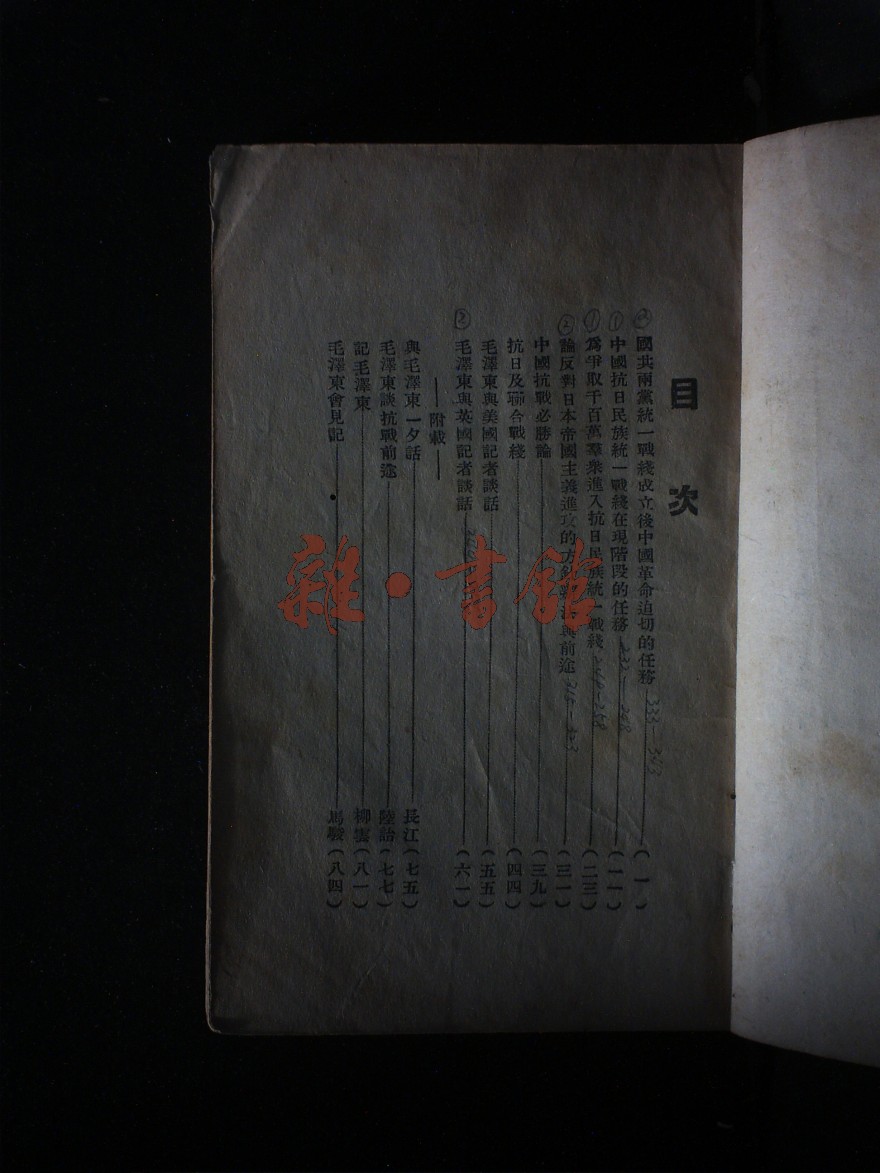 目次
國共兩黨統一戰綫成立後中國革命迫切的任務 333—343 (一)
中國抗日民族統一戰綫在現階段的任務 (一一)
爲爭取千百萬羣衆進入抗日民族統一戰綫 (二三)
論反對日本帝國主義進攻的方針辦法與前途 (三一)
中國抗戰必勝論 (三九)
抗日及聯合戰綫 (四四)
毛澤東與美國記者談話 (五五)
毛澤東與英國記者談話 (六一)
——附載——
與毛澤東一夕話 長江(七五)
毛澤東談抗戰前途 陸詒(七七)
記毛澤東 柳雲(八一)
毛澤東會見記 馬駿(八四)
雜·書館